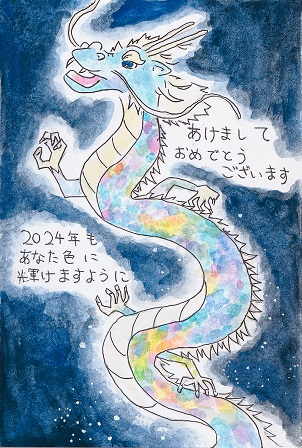 あけまして
おめでとう
ございます
2024年も
あなた色に
輝けますように